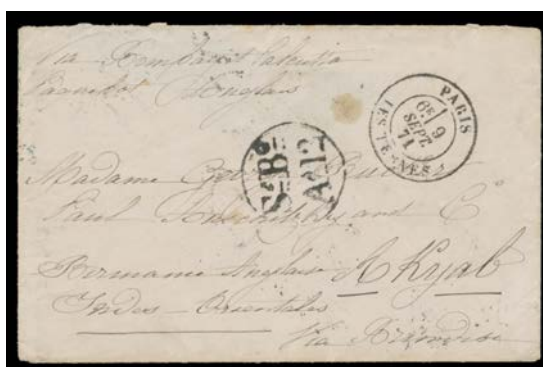 Via Bombay et Calcutta
Paquebot Anglais
PARIS
6E 9
SEPT.
71
LES TERNES
St Bs
A 12
Madame
Paul and Co
Birmanie Anglaise Akyab
Indes - Orientales
Via Brindisi